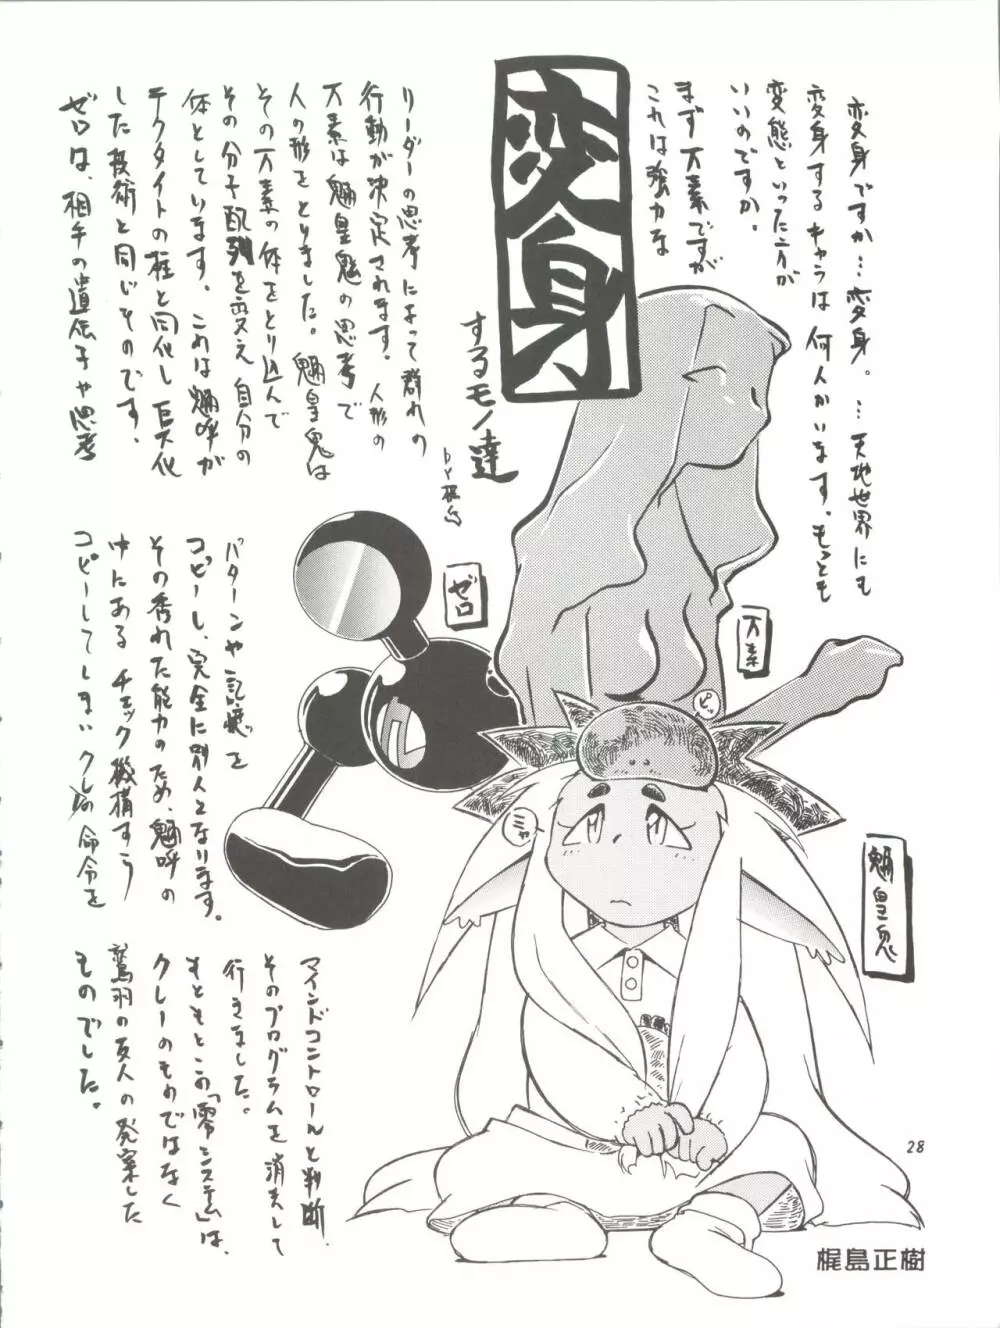 変身
するモノ達
by梶島
変身ですか…変身。…天地世界にも
変身するキャラは何人かいます。もっとも
変態といった方が
いいのですか。
まず万素ですが
これは強力な
リーダーの思考によって群れの
行動が決定されます。人形の
万素は魎皇鬼の思考で
人の形をとりました。魎皇鬼は
その万素の体をとり込んで
その分子配列を変え自分の
体としています。これは魎呼が
テクタイトの柱と同化し巨大化
した技術と同じそのです。
ゼロは、相手の遺伝子や思考
パターンや記憶を
コピーし、完全に別人となります。
その秀れた能力のため、魎呼の
中にある チェック機構すら
コピーしてしまい クレイの命令を
マインドコントロールと判断
そのプログラムを消去して
行きました。
もともとこの「零システム」は、
クレーのそのではなく
鷲羽の友人の発案した
ものでした。
ゼロ
万素
ピッ
ミャ
魎皇鬼
28
梶島正樹